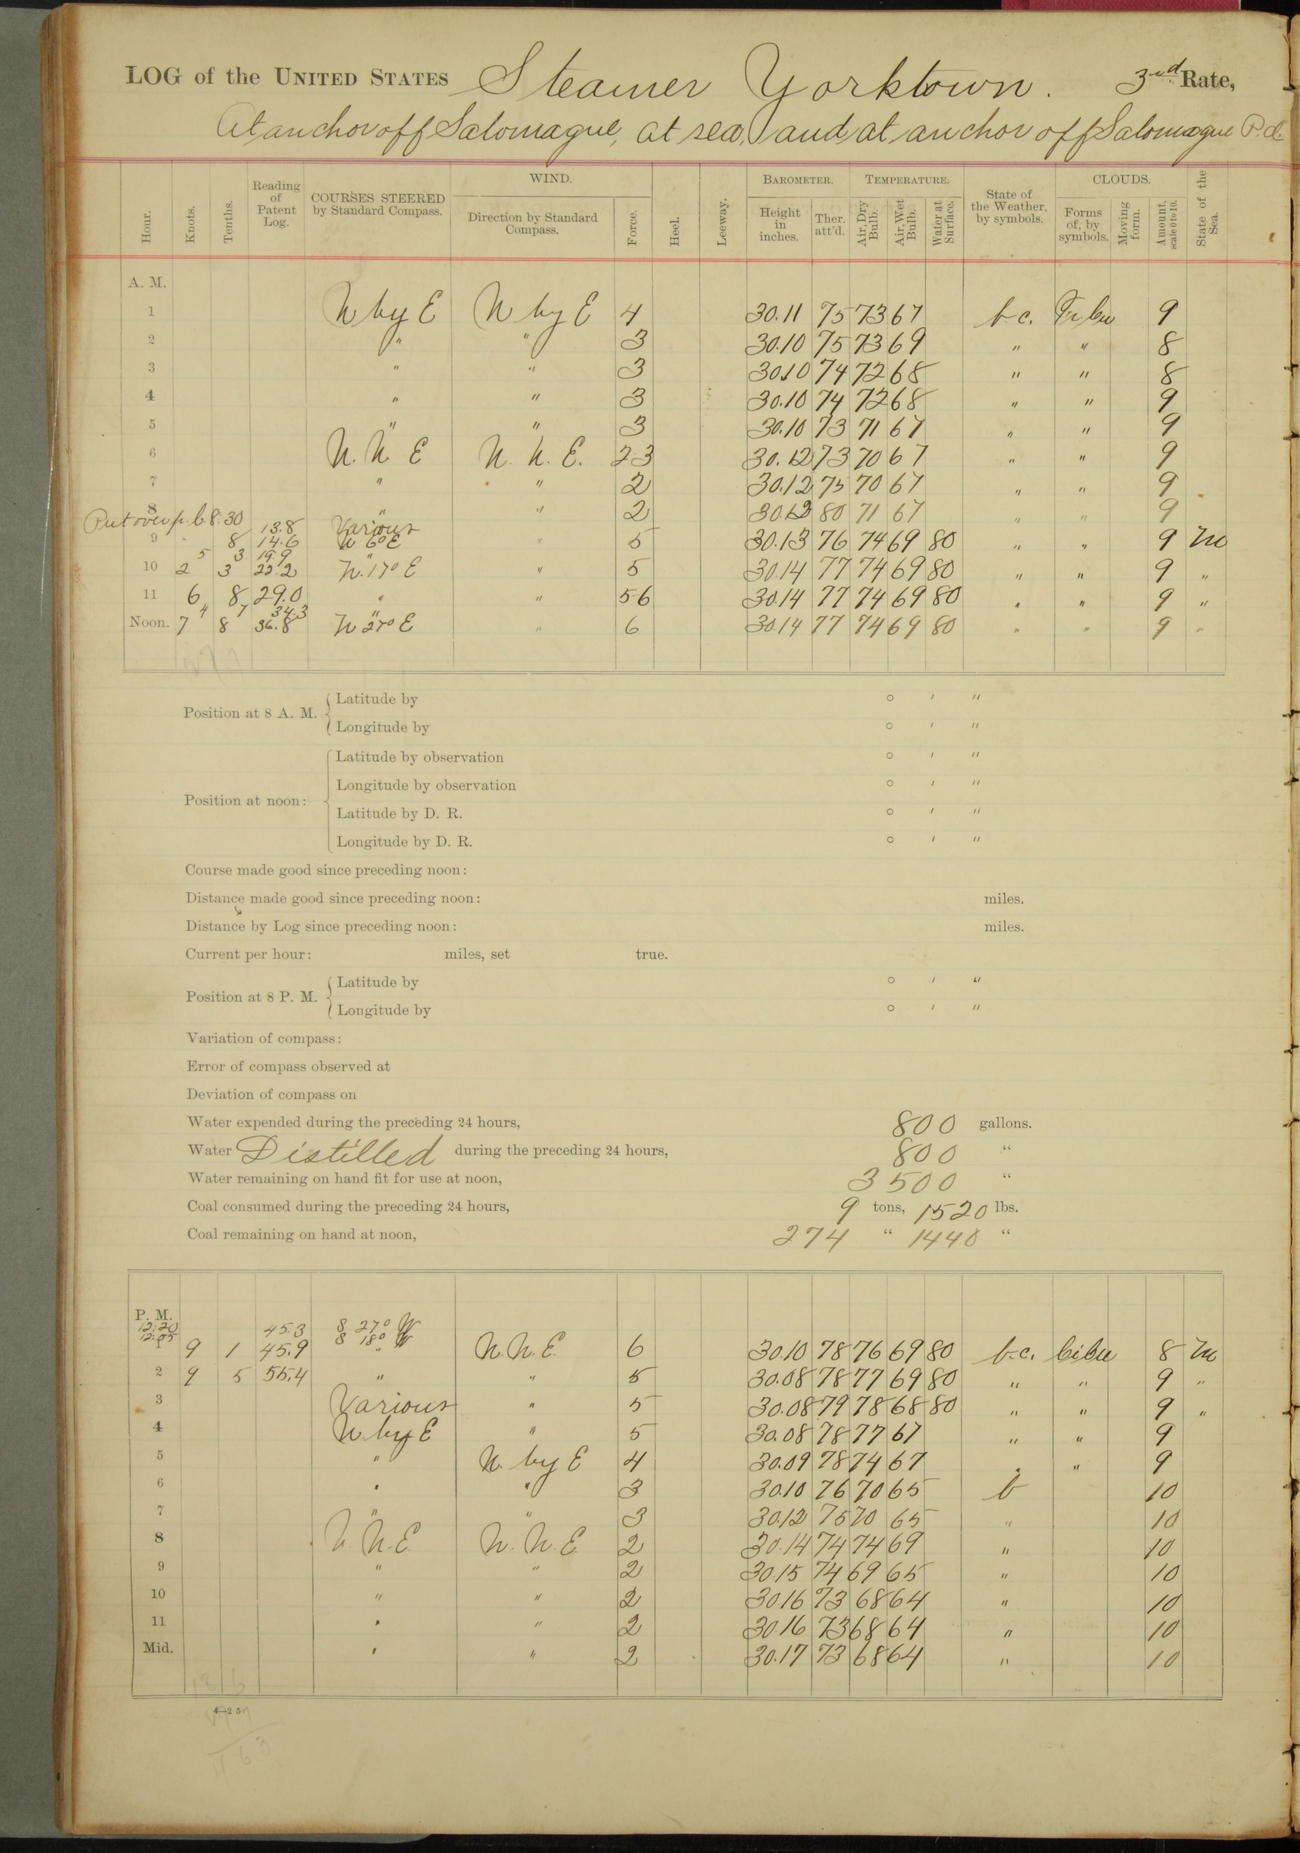 LOG of the UNITED STATES Steamer Yorktown. 3rd Rate,
At anchor off Salomague, at sea, and at anchor off Salomague P.I.
Hour. Knots. Tenths. Reading of Patent Log. COURSES STEERED by Standard Compass. WIND. Direction by Standard Compass. Force. Heel. Leeway. BAROMETER. Height in inches. Ther. att'd. TEMPERATURE. Air, Dry Bulb. Air, Wet Bulb. Water at Surface. State of the Weather, by symbols. CLOUDS. Forms of, by symbols. Moving form. Amount, scale 0 to 10. State of the Sea.
A. M.
1 N by E N by E 4 30.11 75 73 67 b.c. 9
2 " " 3 30.10 75 73 69 " " 8
3 " " 3 30.10 74 72 68 " " 8
4 " " 3 30.10 74 72 68 " " 9
5 " " 3 30.10 73 71 67 " " 9
6 N. N E N. N. E. 23 30.12 73 70 67 " " 9
7 " " 2 30.12 75 70 67 " " 9
8 " " 2 30.12 80 71 67 " " 9
Put over p. l. 8.30 13.8 Various
9 8 14.6 N 6° E " 5 30.13 76 74 69 80 " " 9 m
5 3 19.9 "
10 2 3 22.2 N. 17° E " 5 30.14 77 74 69 80 " " 9 "
11 6 8 29.0 " " 56 30.14 77 74 69 80 " " 9 "
4 7 34.3 "
Noon. 7 8 36.8 N 27° E " 6 30.14 77 74 69 80 " " 9 "
Position at 8 A. M. Latitude by ° ′ ″
Longitude by ° ′ ″
Position at noon: Latitude by observation ° ′ ″
Longitude by observation ° ′ ″
Latitude by D. R. ° ′ ″
Longitude by D. R. ° ′ ″
Course made good since preceding noon:
Distance made good since preceding noon: miles.
Distance by Log since preceding noon: miles.
Current per hour: miles, set true.
Position at 8 P. M. Latitude by ° ′ ″
Longitude by ° ′ ″
Variation of compass:
Error of compass observed at
Deviation of compass on
Water expended during the preceding 24 hours, 800 gallons.
Water Distilled during the preceding 24 hours, 800 "
Water remaining on hand fit for use at noon, 3500 "
Coal consumed during the preceding 24 hours, 9 tons, 1520 lbs.
Coal remaining on hand at noon, 274 " 1440 "
P. M.
12:20 45.3 S 27° W
12:55 S 18° W
1 9 1 45.9 " N. N. E. 6 30.10 78 76 69 80 b.c. Ci Cu 8 m
2 9 5 55.4 " " 5 30.08 78 77 69 80 " " 9 "
3 Various " 5 30.08 79 78 68 80 " " 9 "
4 N by E " 5 30.08 78 77 67 " " 9
5 " N. by E 4 30.09 78 74 67 " " 9
6 " " 3 30.10 76 70 65 b 10
7 " " 3 30.12 75 70 65 " 10
8 N. N. E N. N. E 2 30.14 74 74 69 " 10
9 " " 2 30.15 74 69 65 " 10
10 " " 2 30.16 73 68 64 " 10
11 " " 2 30.16 73 68 64 " 10
Mid. " " 2 30.17 73 68 64 " 10
4—25